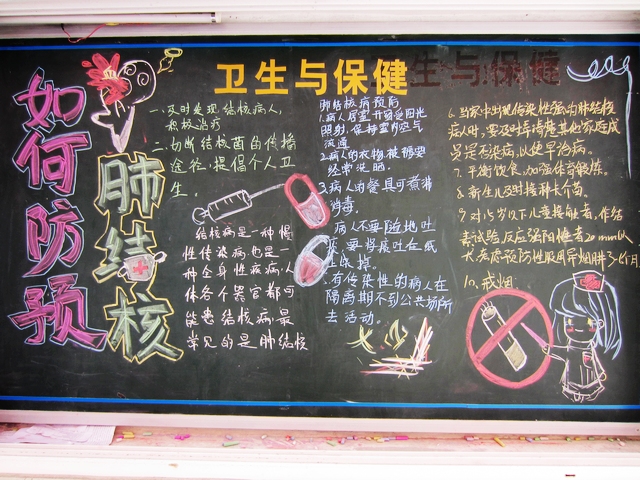 如何防预
肺结核
卫生与保健
生与保健
一.及时发现结核病人,
积极治疗
二.切断结核菌的传播
途径,提倡个人卫
生.
结核病是一种慢
性传染病也是一
种全身性疾病,人
体各个器官都可
能患结核病,最
常见的是肺结核
肺结核病预防
1.病人居室开窗受阳光
照射,保持室内空气
流通
2.病人的衣物,被褥要
经常洗晒.
3.病人的餐具可煮沸
消毒.
病人不要随地吐
痰,要将痰吐在纸
上
有传染性的病人在
隔离期不到公共场所
去活动.
6.当家中出现传染性强的肺结核
病人时,要及时
员是否感染病,以便早治病.
7.平衡饮食,加强体育锻炼.
8.新生儿及时接种卡介苗.
9.对15岁以下儿童接触者,作结
素试验,反应强阳性者20mm以
大者应预防性服用异烟肼3个月
10.戒烟